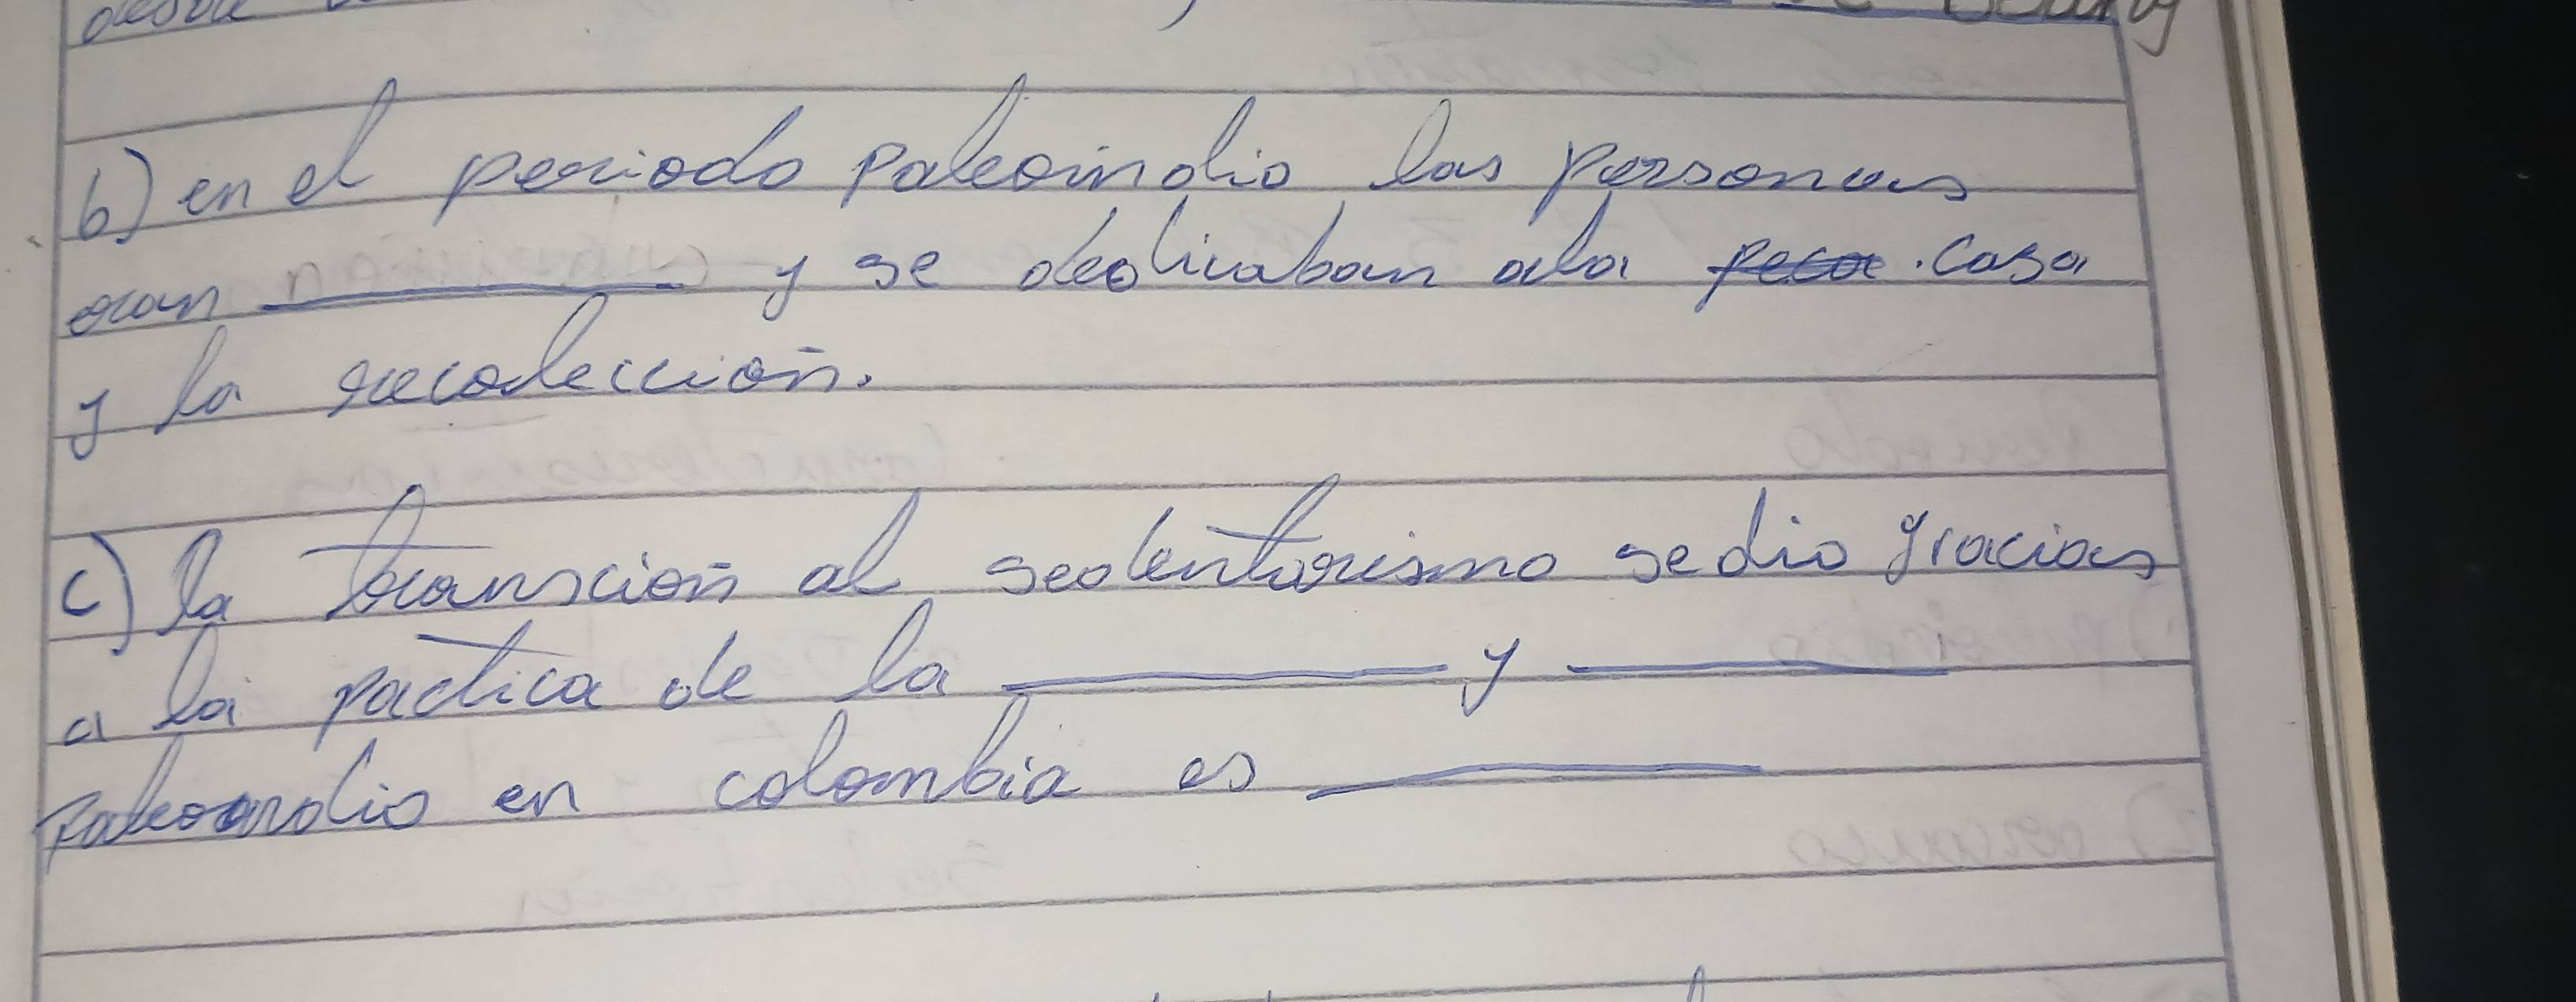 b) en el periodo paleoindio las personas
eran ________ y se dedicaban ala peca. casa
y la recoleccion.
c) la transcion al sedentarismo se dio gracias
a la pactica de la ________ y ________
paleoandio en colombia es ________